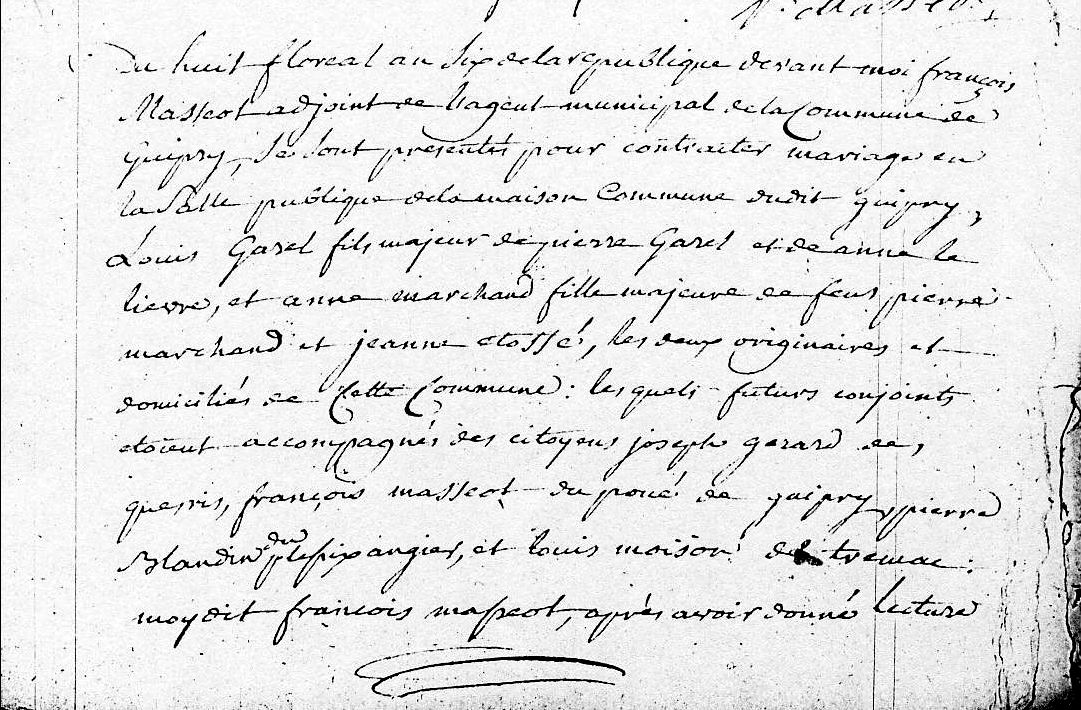 Du huit floreal an six de la republique devant moi françois
Masseot adjoint de l'agent municipal de la Commune de
Guipry, se sont presentés pour contracter mariage en
la Salle publique de la maison Commune dudit guipry,
Louis Garel fils majeur de pierre Garel et de anne le
lievre, et anne marchand fille majeure de feus pierre
marchand et jeanne etossé, les deux originaires et
domiciliés de Cette Commune : lesquels futurs conjoints
etoient accompagnés des citoyens joseph gerard de,
querris, françois masseot du poué de guipry, pierre
Blandin du plesix angier, et louis moison de tremac :
moy dit francois masseot, après avoir donné lecture